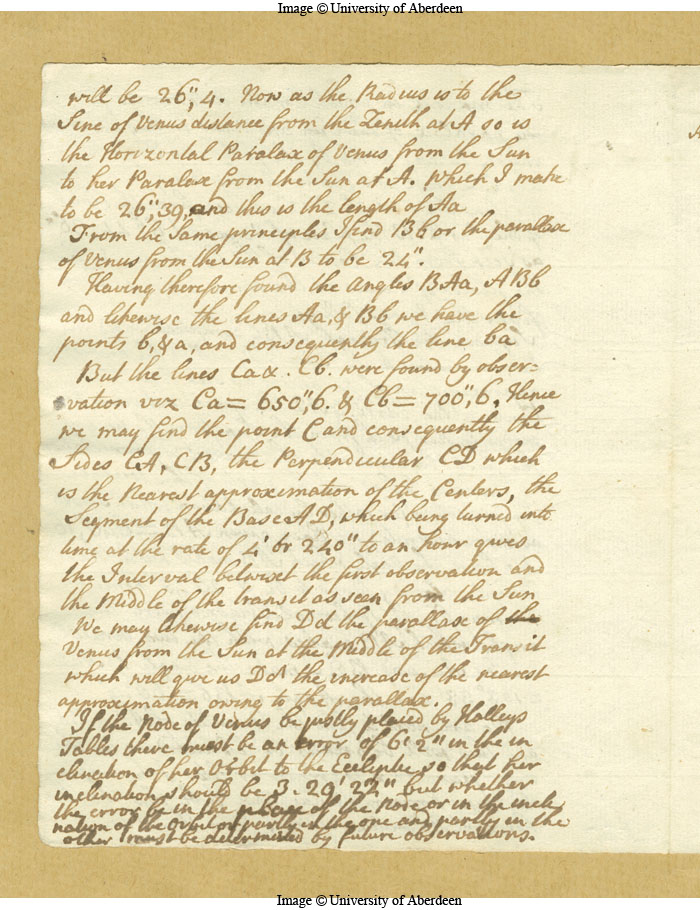 Image © University of Aberdeen
will be 26",4. Now as the Radius is to the
Sine of Venus distance from the Zenith at A so is
the Horizontal Paralax of Venus from the Sun
to her Paralax from the Sun at A. Which I make
to be 26",39, and this is the length of Aa
From the Same principles I find Bb or the parallax
of Venus from the Sun at B to be 24".
Having therefore found the Angles BAa, ABb
and likewise the lines Aa, & Bb we have the
points b, & a, and consequently the line ba
But the lines Ca & . Cb. were found by obser=
vation viz Ca = 650",6. & Cb = 700",6. Hence
we may find the point C and consequently the
Sides CA, CB, the Perpendicular CD which
is the Nearest approximation of the Centers, the
Segment of the Base AD, which being turned into
time at the rate of 4' or 240" to an hour gives
the Interval betwixt the first observation and
the Middle of the transit as seen from the Sun
We may likewise find Dd the parallax of the
Venus from the Sun at the Middle of the Transit
which will give us Dd the increase of the nearest
approximation owing to the parallax.
If the Node of Venus be justly placed by Halleys
Tables there must be an error of 6' 2" in the in
clination of her Orbit to the Ecliptic so that her
inclination should be 3. 29' 22" but whether
the error be in the place of the Node or in the incli
nation of the Orbit or partly in the one and partly in the
other must be determined by future observations.
Image © University of Aberdeen